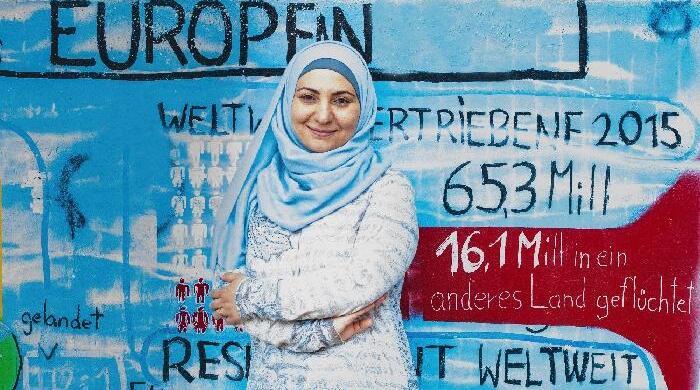 EUROPEN
WELTW ERTRIEBENE 2015
65,3 Mill
16,1 Mill in ein
anderes Land geflüchtet
gelandet
RES T WELTWEIT